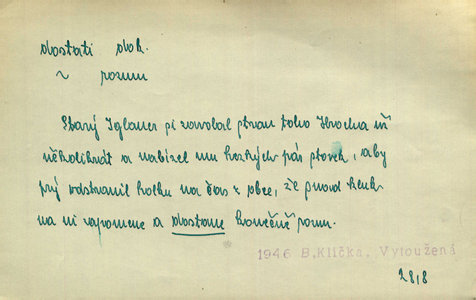 dostati dok.
~ rozum
Starý Iglauer si zavolal pána toho Hrocha už
několikrát a nabízel mu hezkých pár stovek, aby
prý odstranil holku na čas z obce, že snad kluk
na ni zapomene a dostane konečně rozum.
1946 B.Klička, Vytoužená
28,8